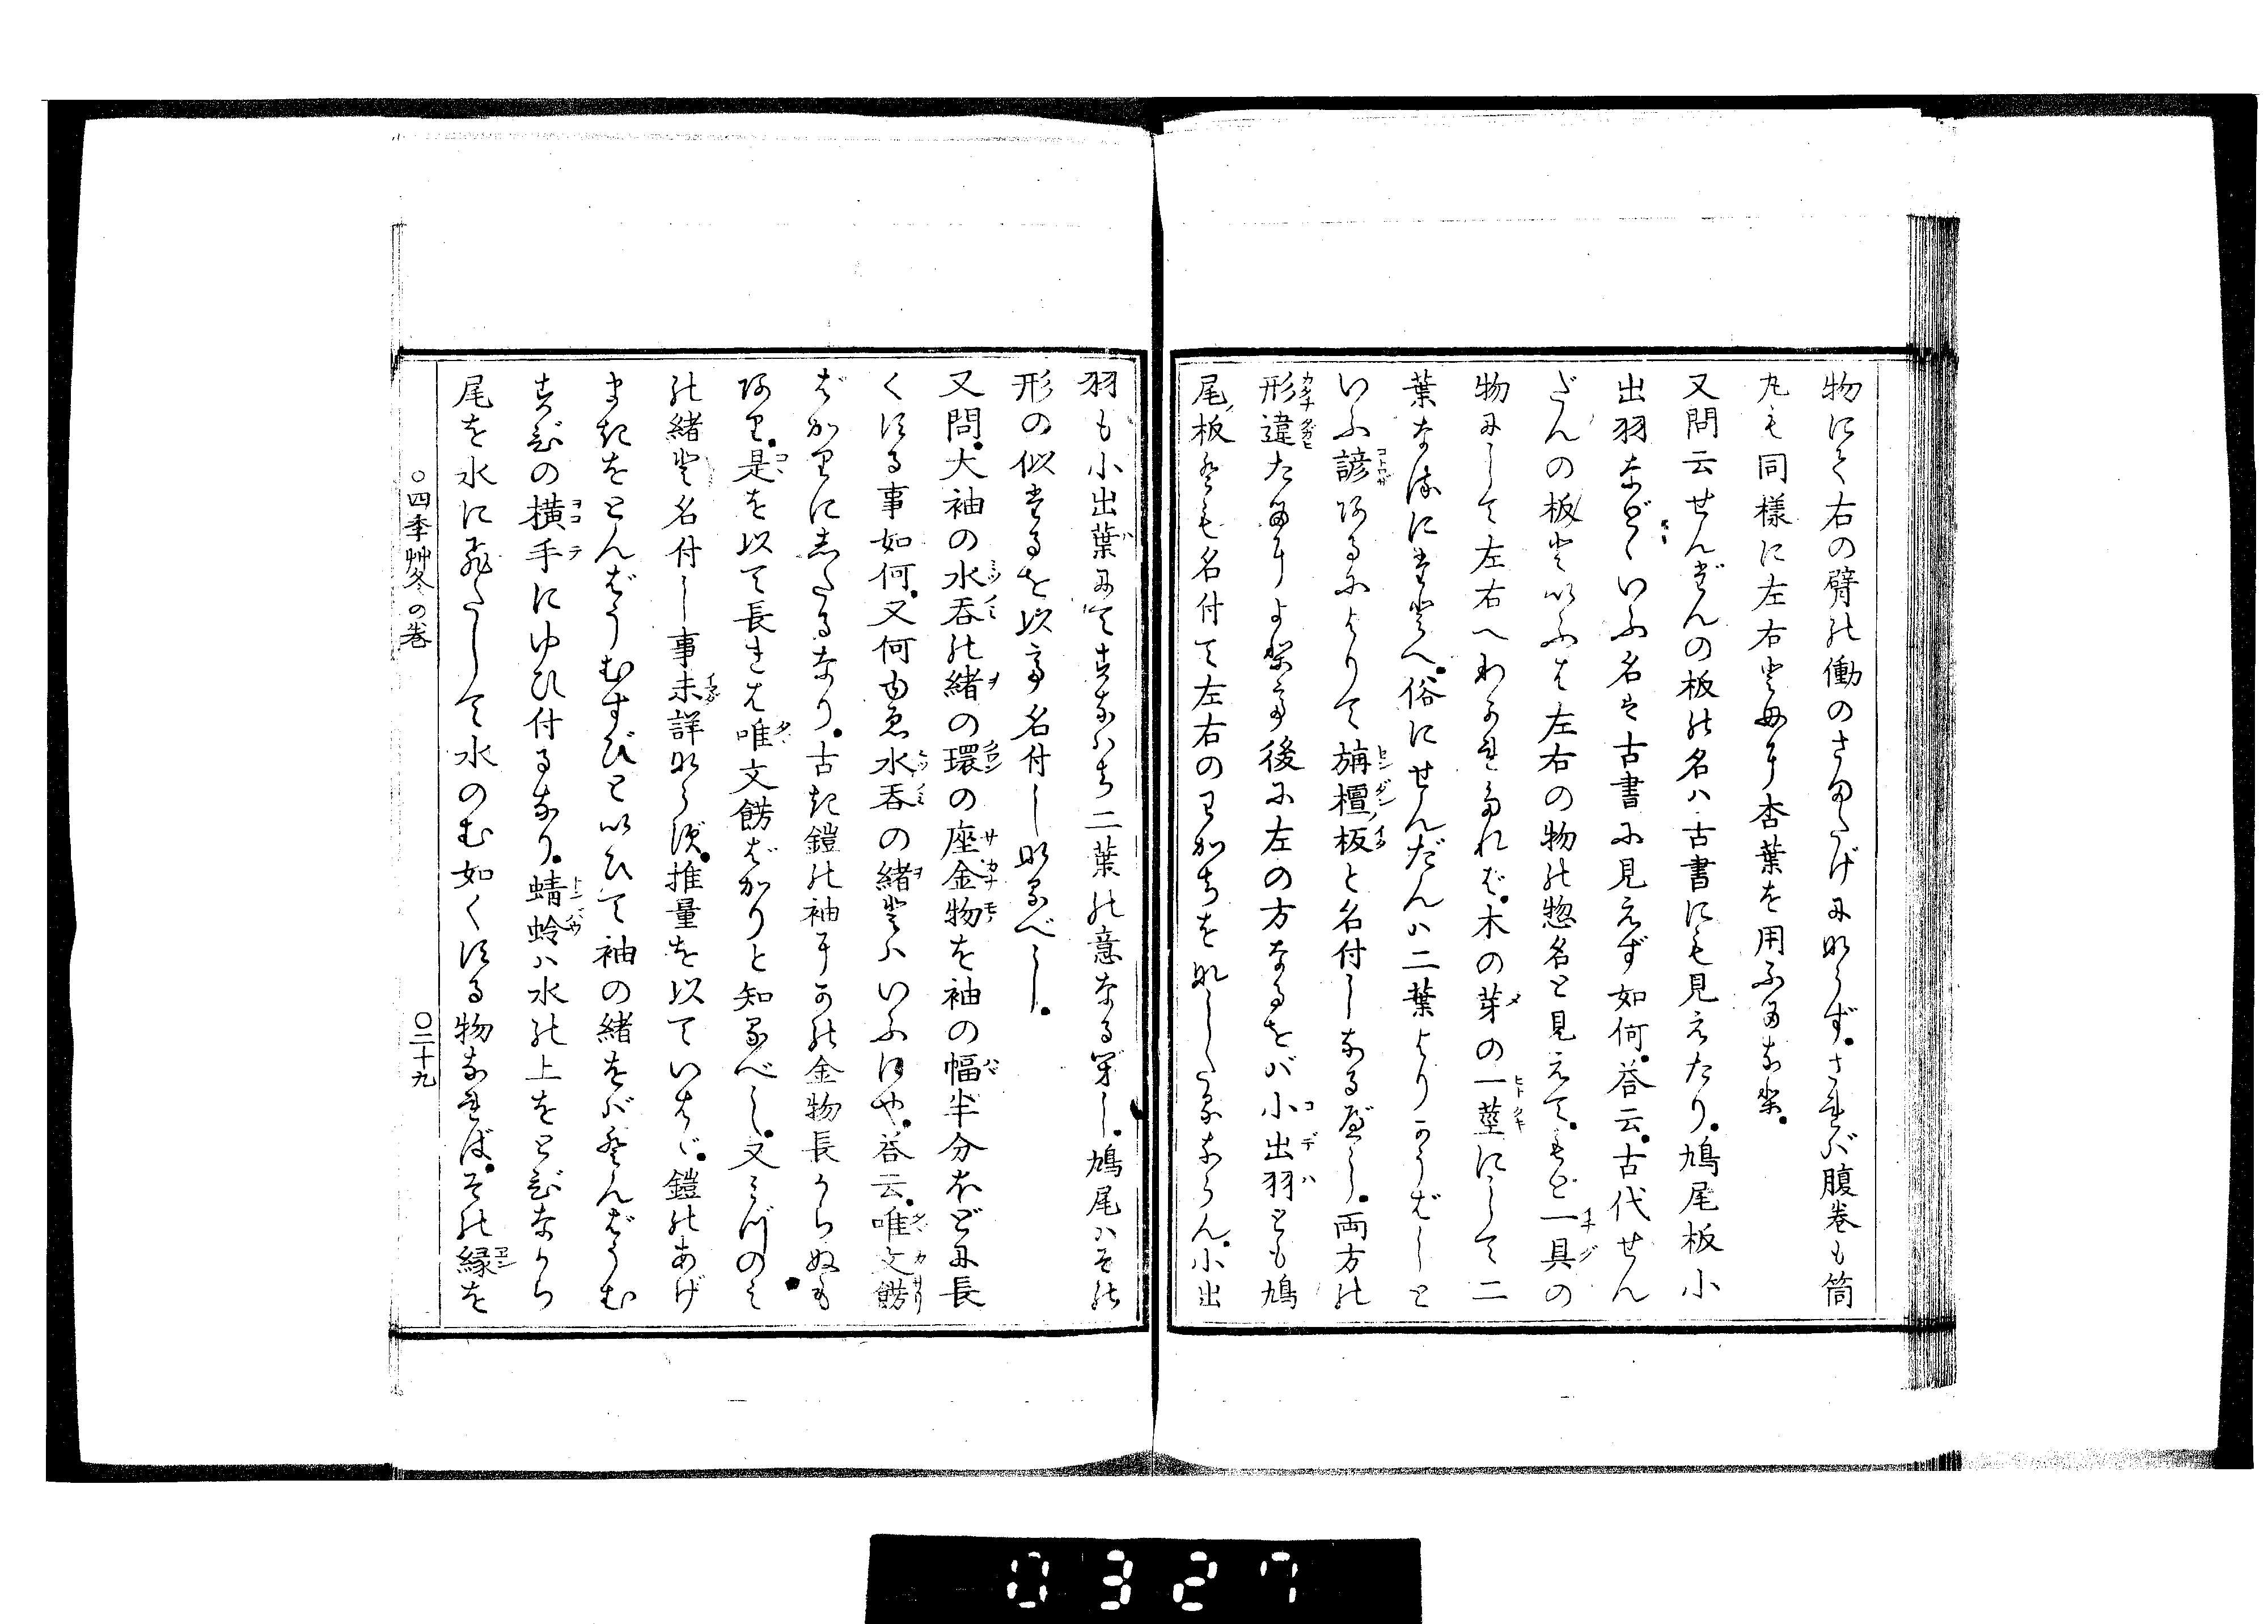 物にて右の臂の働のさまたげにならず。されバ腹巻も筒
丸も同様に左右とも に杏葉を用ふるなり。
又問云せんだんの板の名ハ古書にも見えたり。鳩尾板小
出羽などゝいふ名は古書に見えず如何。答云。古代せん
だんの板といふは左右の物の惣名と見えて。もと一具の
物にして左右へわかれたれば。木の芽の一莖にして二
葉なるにたとへ。俗にせんだんハ二葉よりかうばしと
いふ諺あるによりて旃檀板と名付しなるべし。両方の
形違たるによりて後に左の方なるをバ小出羽とも鳩
尾板とも名付て左右のわかちをなしたるならん。小出
羽も小出葉にてすなハち二葉の意なるべし。鳩尾ハその
形の似たるを以て名付しなるべし。
又問。大袖の水呑の緒の環の座金物を袖の幅半分ほどに長
くする事如何。又何ゆゑ水呑の緒とハいふにや。答云。唯文餝
ばかりにしたるなり。古き鎧の袖にこの金物長からぬも
あり。是を以て長きは唯文餝ばかりと知るべし。又みづのみ
の緒と名付し事未詳ならず。推量を以ていはゞ。鎧のあげ
まきをとんばうむすびといひて袖の緒をバとんばうむ
すびの横手にゆひ付るなり。蜻蛉ハ水の上をとびながら
尾を水にひたして水のむ如くする物なれば。その縁を
○四季艸冬の巻
○二十九
0327